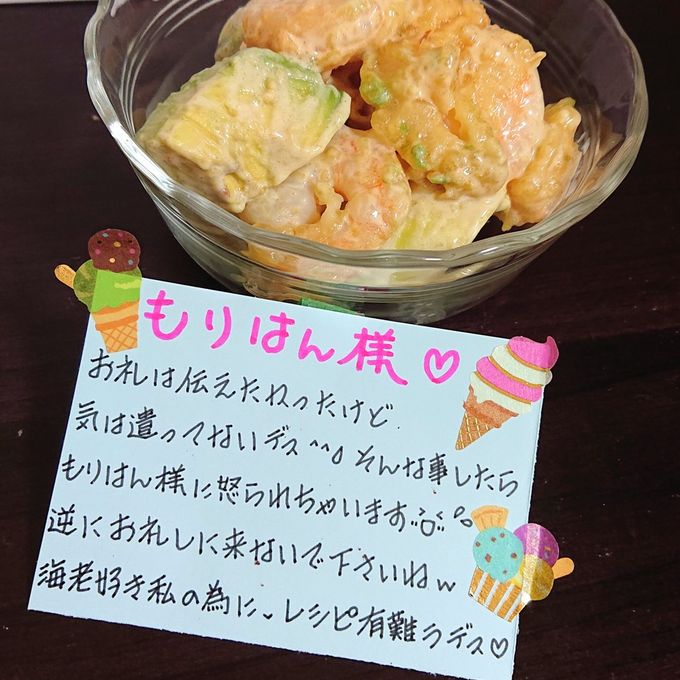 もりはん様♡
お礼は伝えたかったけど
気は遣ってないデス^^♪そんな事したら
もりはん様に怒られちゃいます
逆にお礼しに来ないで下さいねw
海老好き私の為に、レシピ有難うデス♡